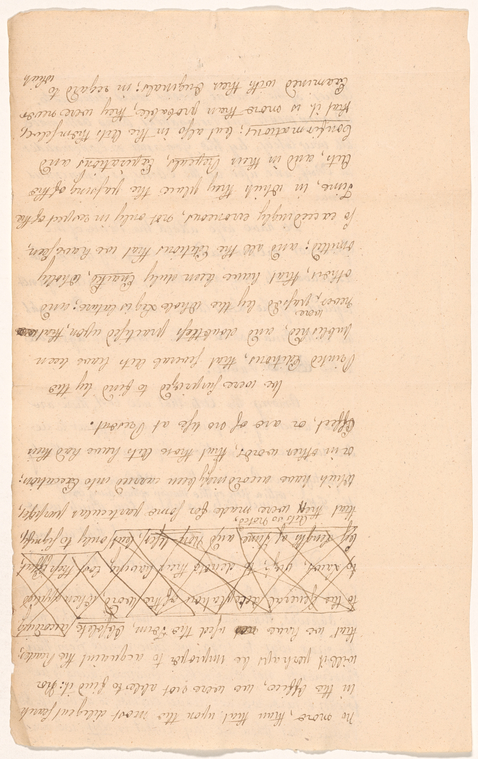 no more, than that upon the most diligent search
in the Office, we were not able to find it: Nor
will it perhaps be improper to acquaint the Reader,
that we have used the Term, Obsolete according
to the general Acceptation of the Word when applied
to Laws, viz, to denote their having lost their Effect
by length of Time and Non User, but only to signify,
Acts so noted,
that they were made for some particular purposes,
which have accordingly been carried into Execution;
or in other words, that those Acts have had their
Effect, or are of no Use at Present.
We were surprized to find by the
Printed Editions, that several Acts have been
published, and doubtless practised upon, that
were
never passed by the whole Legislature; and
others, that have been duly Enacted, wholly
omitted; and all the Editions that we have seen,
so exceedingly erroneous, not only in respect of the
Time, in which they place the passing of the
Acts, and in their Repeals, Expirations and
Confirmations; but also in the Acts themselves,
that it is more than probable, they were never
Examined with their Originals; in regard to
which